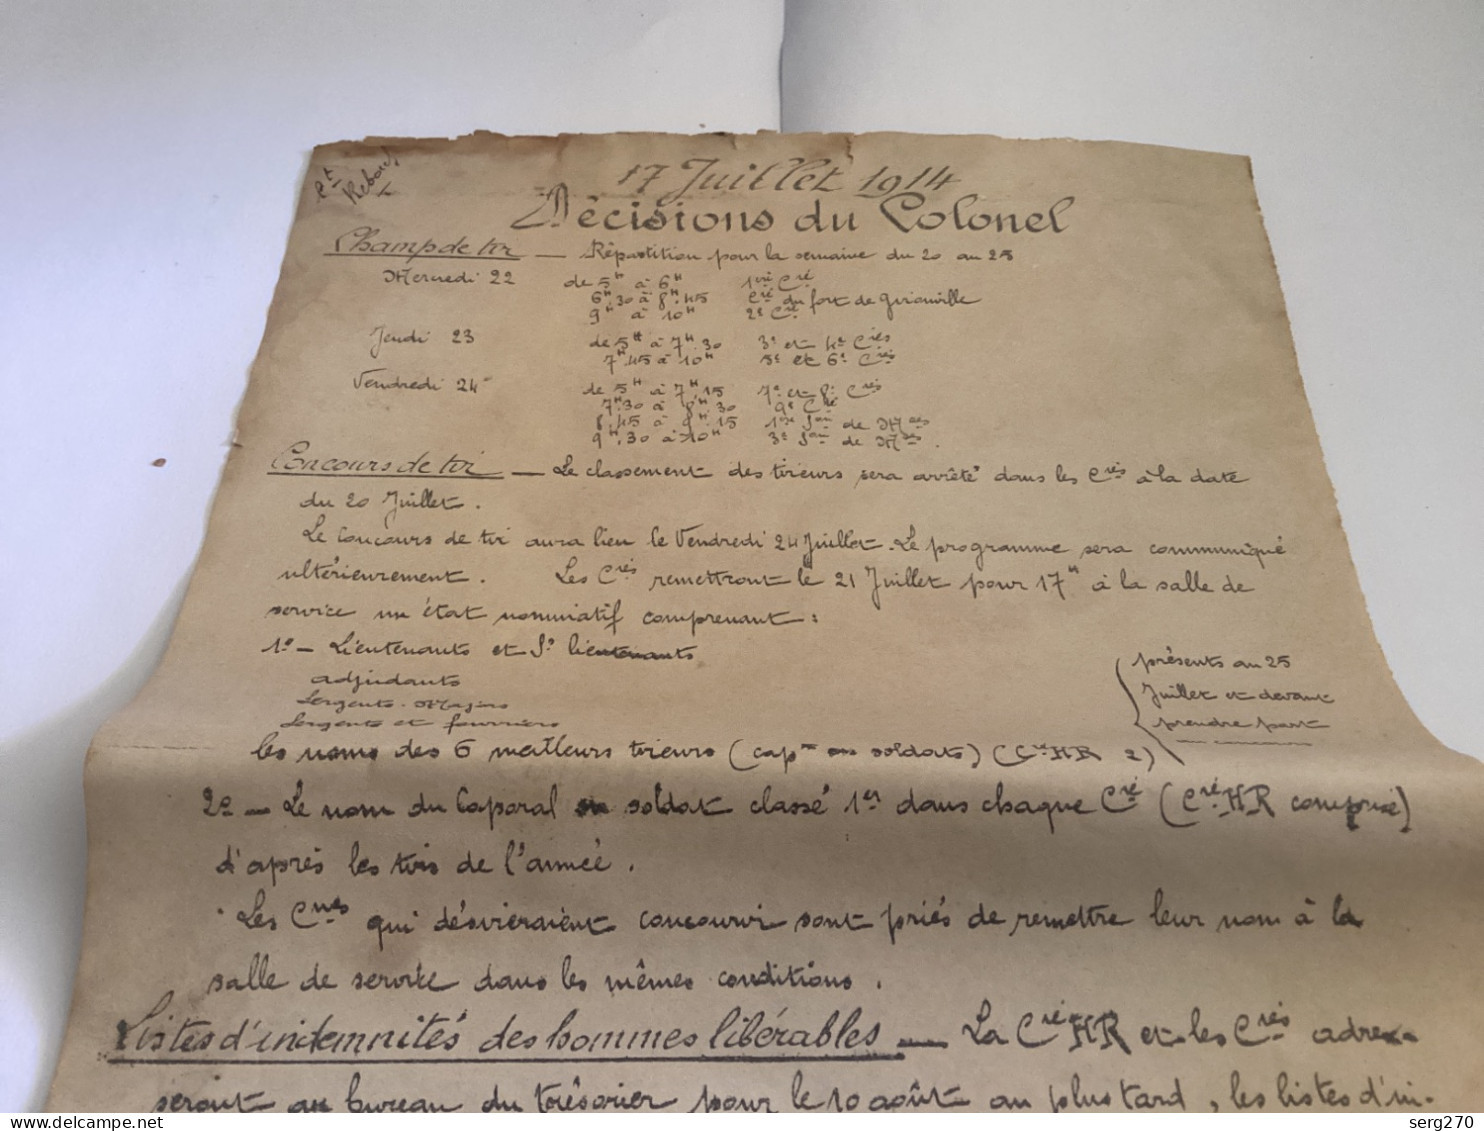 17 Juillet 1914
Décisions du Colonel
Champ de tir — Répartition pour la semaine du 20 au 25
Mercredi 22 de 5H à 6H 1ère Cie
6H,30 à 8H,45 Cie du fort de Gironville
9H à 10H 2e Cie
Jeudi 23 de 5H à 7H,30 3e et 4e Cies
7H,45 à 10H 5e et 6e Cies
Vendredi 24 de 5H à 7H,15 7e et 8e Cies
7H,30 à 8H,30 9e Cie
8H,45 à 9H,15 1ère Son de Mses
9H,30 à 10H 3e Son de Mses.
Concours de tir — Le classement des tireurs sera arrêté dans les Cies à la date
du 20 Juillet.
Le Concours de tir aura lieu le Vendredi 24 Juillet. Le programme sera communiqué
ultérieurement. Les Cies remettront le 21 Juillet pour 17H à la salle de
service un état nominatif comprenant :
1° — Lieutenants et S. lieutenants
adjudants
Sergents-Majors
Sergents et fourriers
présents au 25
Juillet et devant
prendre part
les noms des 6 meilleurs tireurs (capx ou soldats) (Cie HR 2)
2° — Le nom du Caporal ou soldat classé 1er dans chaque Cie (Cie HR comprise)
d'après les tirs de l'année.
Les Cnes qui désireraient concourir sont priés de remettre leur nom à la
salle de service dans les mêmes conditions.
Listes d'indemnités des hommes libérables — La Cie HR et les Cies adres-
seront au bureau du trésorier pour le 10 août au plus tard, les listes d'in-
delcampe.net
serg270